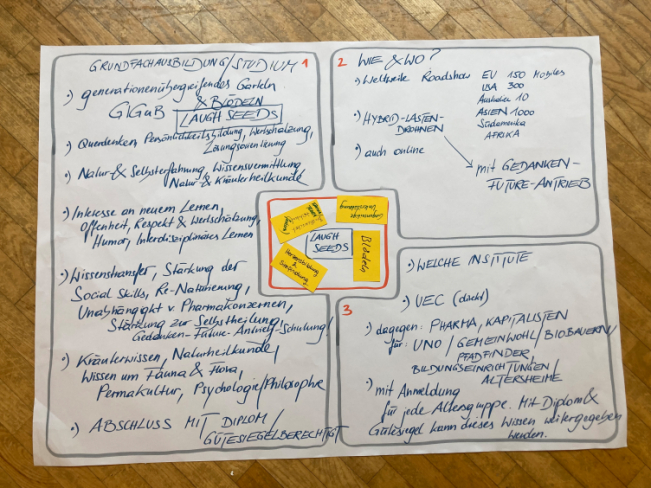 GRUNDFACHAUSBILDUNG/STUDIUM 1
:) generationenübergreifendes Garteln
& BLÖDELN
GIGuB LAUGH SEEDS
:) Querdenken, Persönlichkeitsbildung, Wertschätzung,
Lösungsorientierung
:) Natur- & Selbsterfahrung, Wissensvermittlung
Natur & Kräuterheilkunde
:) Interesse an neuem Lernen,
Offenheit, Respekt & Wertschätzung,
Humor, Interdisziplinäres Lernen
:) Wissenstransfer, Stärkung der
Social Skills, Re-Naturierung,
Unabhängigkt v. Pharmakonzernen,
Stärkung zur Selbstheilung,
Gedanken-Future-Antrieb-Schulung!
:) Kräuterwissen, Naturheilkunde,
Wissen um Fauna & Flora,
Permakultur, Psychologie/Philosophie
:) ABSCHLUSS MIT DIPLOM/
GÜTESIEGELBERECHTIGT
2 WIE & WO?
:) Weltweite Roadshow EU 150 Mobiles
USA 300
Australia 10
ASIEN 1000
Südamerika
AFRIKA
:) HYBRID-LASTEN-
DROHNEN
:) auch online
mit GEDANKEN-
FUTURE-ANTRIEB
LAUGH
SEEDS
Blödeln
3
:) WELCHE INSTITUTE
:) UEC (dacht)
:) dagegen: PHARMA, KAPITALISTEN
für: UNO/GEMEINWOHL/BIOBAUERN/
PFADFINDER/
BILDUNGSEINRICHTUNGEN/
ALTERSHEIME
:) mit Anmeldung
für jede Altersgruppe. Mit Diplom &
Gütesiegel kann dieses Wissen weitergegeben
werden.